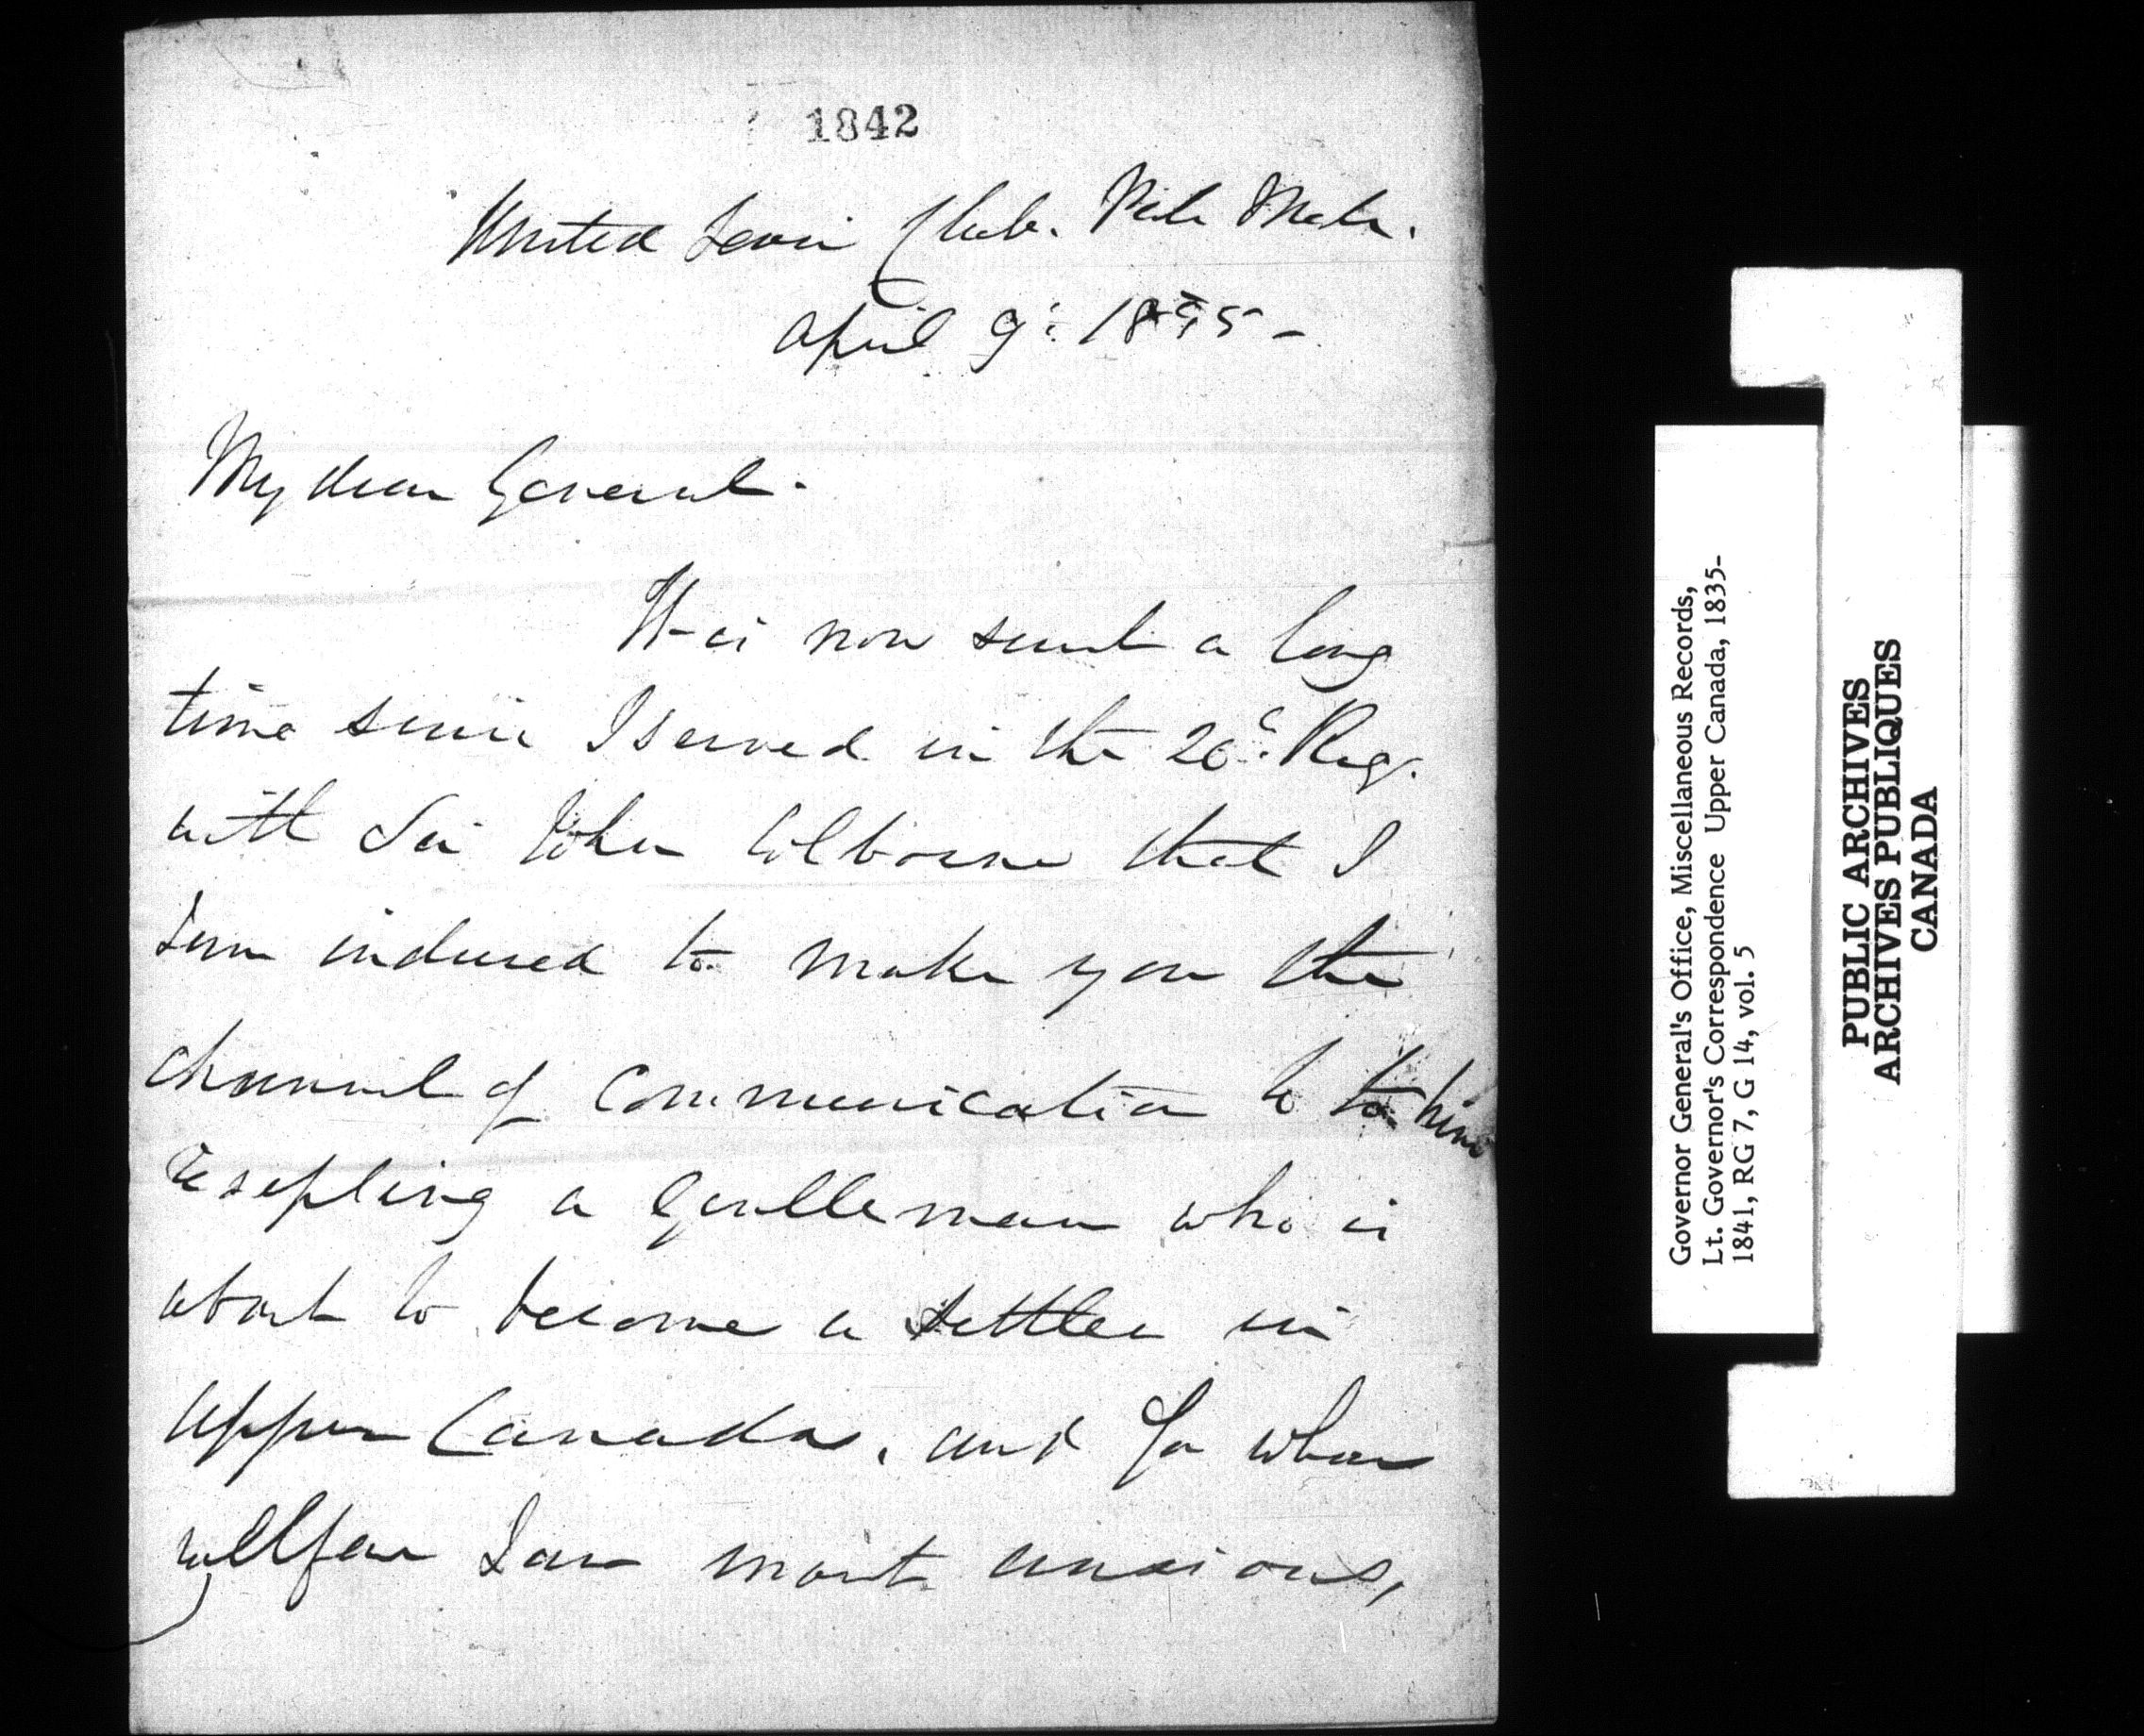 1842
United Servic Club. Pall Mall.
April 9th: 1835 -
My dear General.
It is now such a long
time since I served in the 20th. Reg.
with Sir John Colborne that I
am induced to make you the
channel of communication to to him
respecting a Gentleman who is
about to become a settler in
Upper Canada, and for whose
wellfare I am most anxious,
Governor General's Office, Miscellaneous Records,
Lt. Governor's Correspondence Upper Canada, 1835-
1841, RG 7, G 14, vol. 5
PUBLIC ARCHIVES
ARCHIVES PUBLIQUES
CANADA